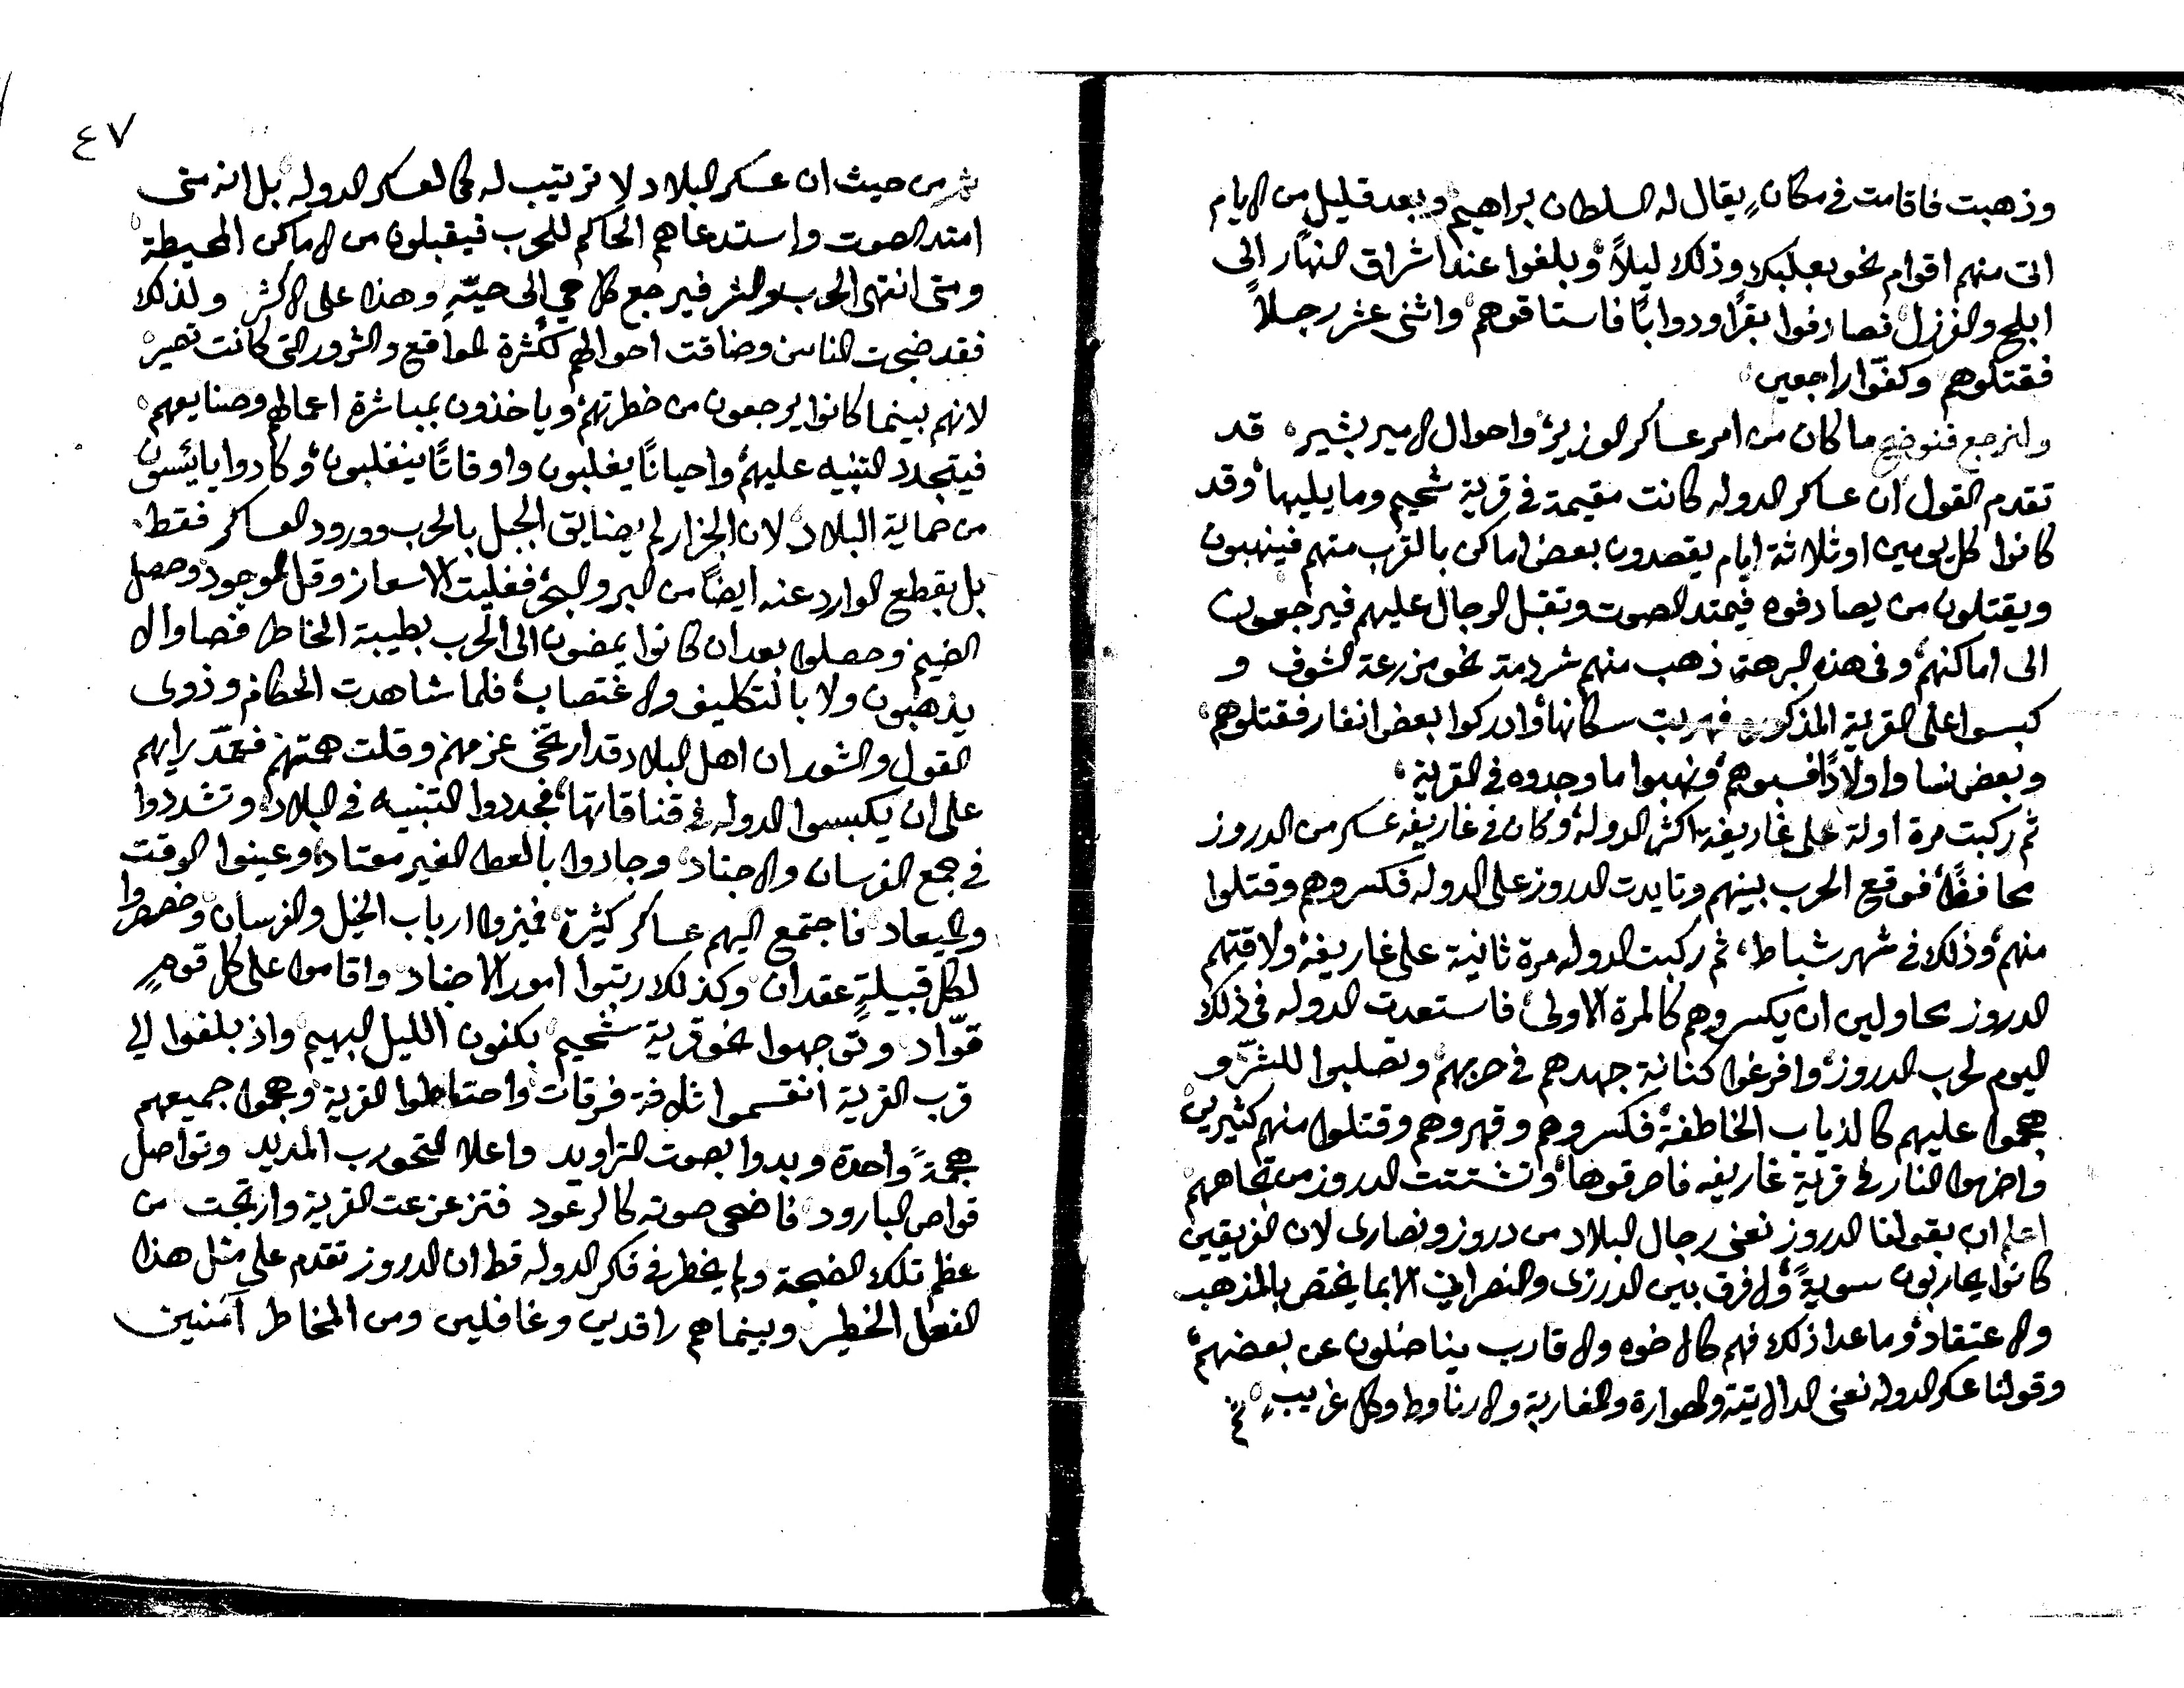 وذهبت فاقامت في مكانٍ يقال له السلطان براهيم وبعد قليل من الايام
اتى منهم اقوام نحو بعلبك وذلك ليلاً وبلغوا عند اشراق النهار الى
ابلح والفرزل فصادفوا بقرًا ودوابًا فاستاقوهم واثنى عشر رجلاً
فقتلوهم وكفّوا راجعين
ولنرجع فنوضح ما كان من امر عساكر الوزير واحوال الامير بشير قد
تقدم القول ان عساكر الدوله كانت مقيمة في قرية شحيم وما يليها وقد
كانوا كل يومين او ثلاثة ايام يقصدون بعض اماكن بالقرب منهم فينهبون
ويقتلون من يصادفوه فيمتد الصوت وتقبل الرجال عليهم فيرجعون
الى اماكنهم وفي هذه البرهة ذهب منهم شردمة نحو مزرعة الشوف و
كبسوا على القرية المذكوره فهربت سكانها وادركوا بعض انفار فقتلوهم
وبعض نسا واولادًا فسبوهم ونهبوا ما وجدوه في القرية
ثم ركبت مرة اولة على غاريفة اكثر الدولة وكان في غاريفه عسكر من الدروز
محافظًا فوقع الحرب بينهم وتايدت الدروز على الدوله فكسروهم وقتلوا
منهم وذلك في شهر شباط ثم ركبت الدوله مرة ثانية على غاريفة ولاقتهم
الدروز محاولين ان يكسروهم كالمرة الاولى فاستعدت الدوله في ذلك
اليوم لحرب الدروز وافرغوا كنانية جهدهم في حربهم وتصلبوا للشرّ و
هجموا عليهم كالذياب الخاطفة فكسروهم وقهروهم وقتلوا منهم كثيرين
واضرموا النار في قرية غاريفه فاحرقوها وتشتتت الدروز من تجاههم
اعلم ان بقولنا الدروز نعني رجال البلاد من دروز ونصارى لان الفريقين
كانوا يحاربون سويةً ولا فرق بين الدرزى والنصراني الا بما يختص بالمذهب
والاعتقاد وما عدا ذلك فهم كالاخوه والاقارب يناضلون عن بعضهم
وقولنا عسكر الدوله نعني الدالاتية والهوارة والمغاربة والارناوط وكل غريبٍ ثم
٤٧
ثم من حيث ان عسكر البلاد لا ترتيب له كما لعسكر الدوله بل انه متى
امتد الصوت واستدعاهم الحاكم للحرب فيقبلون من الاماكن المحيطة
ومتى انتهى الحرب والشر فيرجع كل حي الى حيّهِ وهذا على الاكثر ولذلك
فقد ضجت الناس وضاقت احوالهم لكثرة المواقع والشرور التي كانت تصير
لانهم بينما كانوا يرجعون من خطرتهم وياخذون بمباشرة اعمالهم وصنايعهم
فيتجدد التنبيه عليهم واحيانًا يغلبون واوقاتًا ينغلبون وكادوا يائسون
من حماية البلاد لان الجزار لم يضايق الجبل بالحرب وورود العساكر فقط
بل بقطع الوارد عنه ايضًا من البر والبحر فغليت الاسعار وقل الموجود وحصل
الضيم وحصلوا بعد ان كانوا يمضون الى الحرب بطيبة الخاطر فصاروا لا
يذهبون ولا بالتكليف والاغتصاب فلما شاهدت الحكام وذوى
القول والشور ان اهل البلاد قد ارتخى عزمهم وقلت همتهم فعمّد رايهم
على ان يكبسوا الدوله في قناقاتها فجددوا التنبيه في البلاد وتشددوا
في جمع الفرسان والاجناد وجادوا بالعطا الغير معتاد وعينوا الوقت
والميعاد فاجتمع اليهم عساكر كثيرة فميزوا ارباب الخيل والفرسان وخصصوا
لكل قبيلةٍ عقدان وكذلك رتبوا امور الاجناد واقاموا على كل قومٍ
قوّاد وتوجهوا نحو قرية شحيم بكفون الليل البهيم واذ بلغوا الى
قرب القرية انقسموا ثلاثة فرقات واحتاطوا القرية وهجموا جميعهم
هجمةً واحدة وبدوا بصوت التراويد واعلا التحورب المديد وتواصل
قواص البارود فاضحى صوته كالرعود فتزعزعت القرية وارتجت من
عظم تلك الضجة ولم يخطر في فكر الدوله قط ان الدروز تقدم على مثل هذا
الفعل الخطير وبينما هم راقدين وغافلين ومن المخاطر آمنين